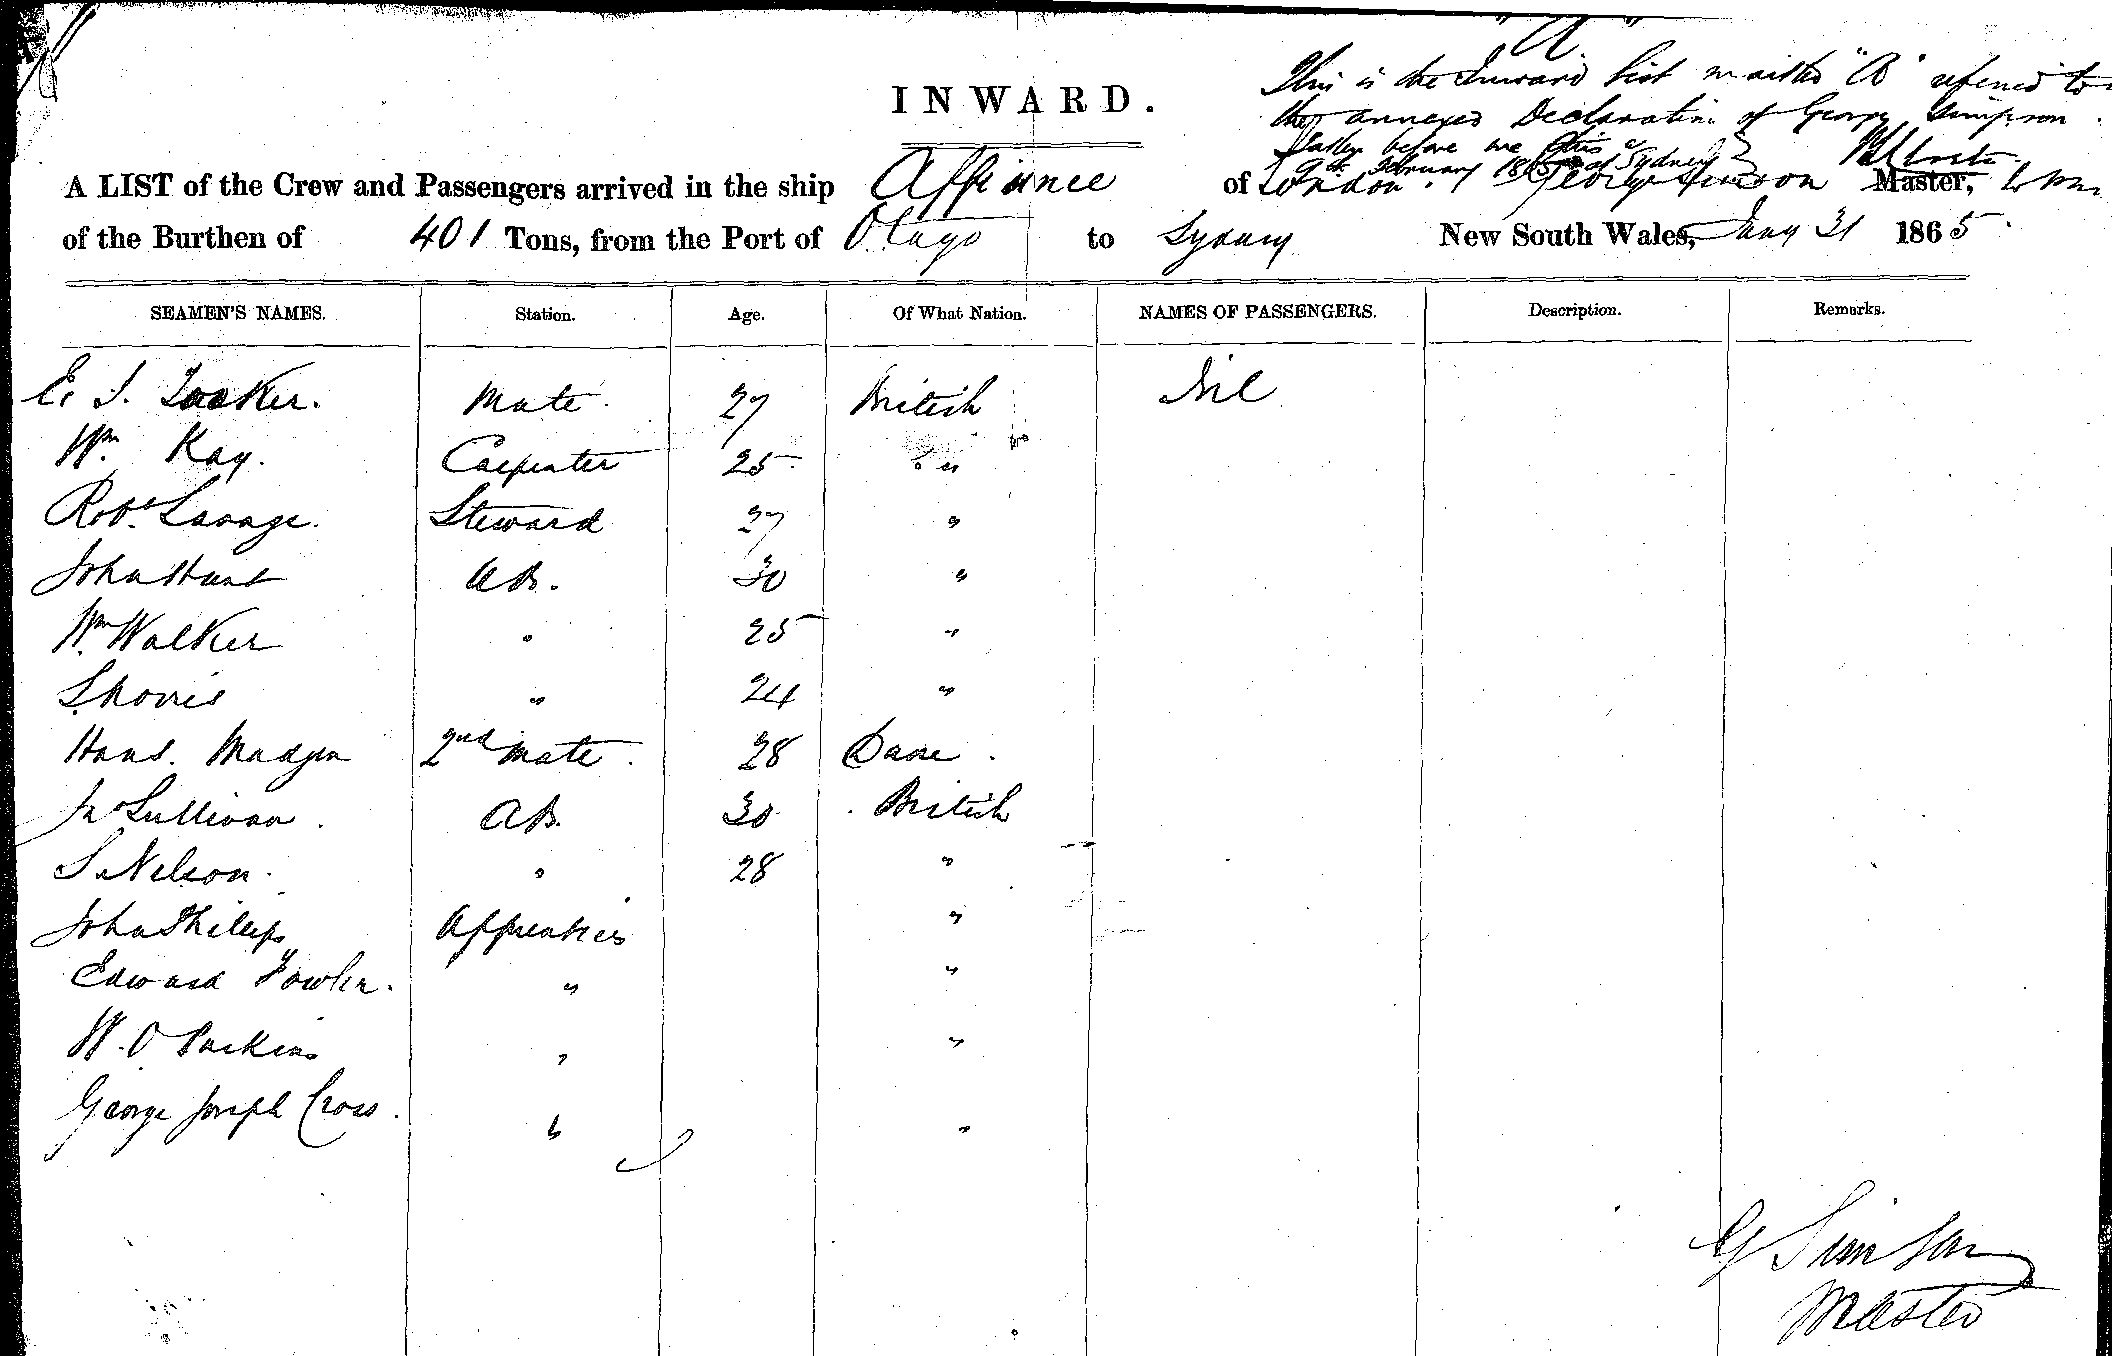 "A"
This is the Inward List marked "A" referred to
the annexed Declaration of George Simpson
taken before me this
9th February 1865 at Sydney
INWARD.
A LIST of the Crew and Passengers arrived in the ship Affiance of London George Simpson Master,
of the Burthen of 401 Tons, from the Port of Otago to Sydney New South Wales, Jany 31 1865.
SEAMEN'S NAMES. Station. Age. Of What Nation. NAMES OF PASSENGERS. Description. Remarks.
E. J. Mate 27 British Nil
Wm. Kay. Carpenter 25 "
Robt. Savage. Steward 27 "
John Hunt AB. 30 "
Wm Walker " 25 "
" 24 "
Hans. Madsen 2nd Mate. 28 Dane.
Jno Sullivan. AB. 30 British
S. Nelson. " 28 "
John Phillips Apprentice "
Edward Fowler. " "
W. O Parkins " "
George Joseph Cross. " "
G Simpson
Master